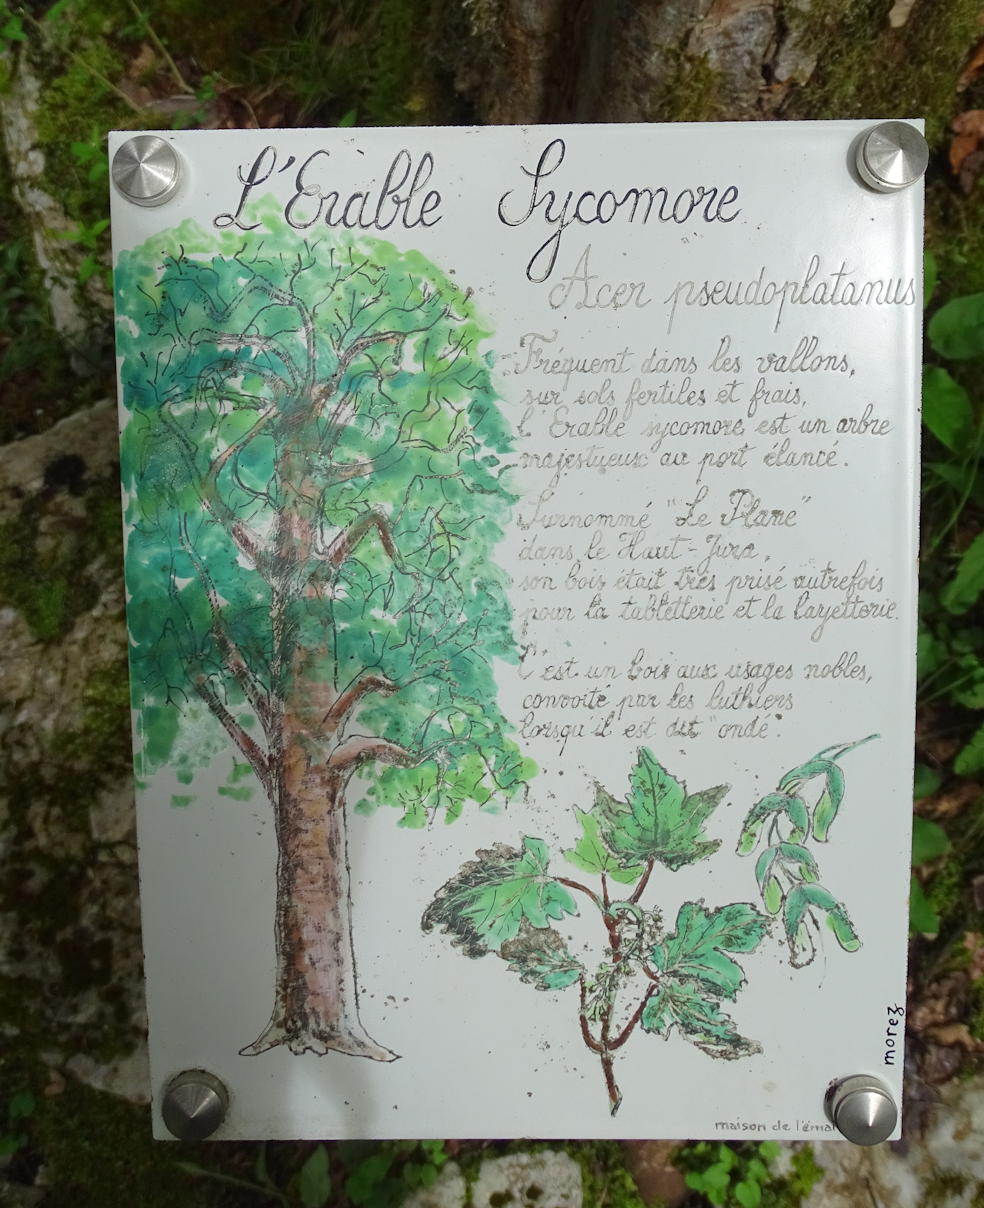 L'Erable Sycomore
Acer pseudoplatanus
Fréquent dans les vallons,
sur sols fertiles et frais,
l'Erable sycomore est un arbre
majestueux au port élancé.
Surnommé "Le Plane"
dans le Haut-Jura,
son bois était très prisé autrefois
pour la tabletterie et la layetterie.
C'est un bois aux usages nobles,
convoité par les luthiers
lorsqu'il est dit "ondé".
morez
maison de l'émai